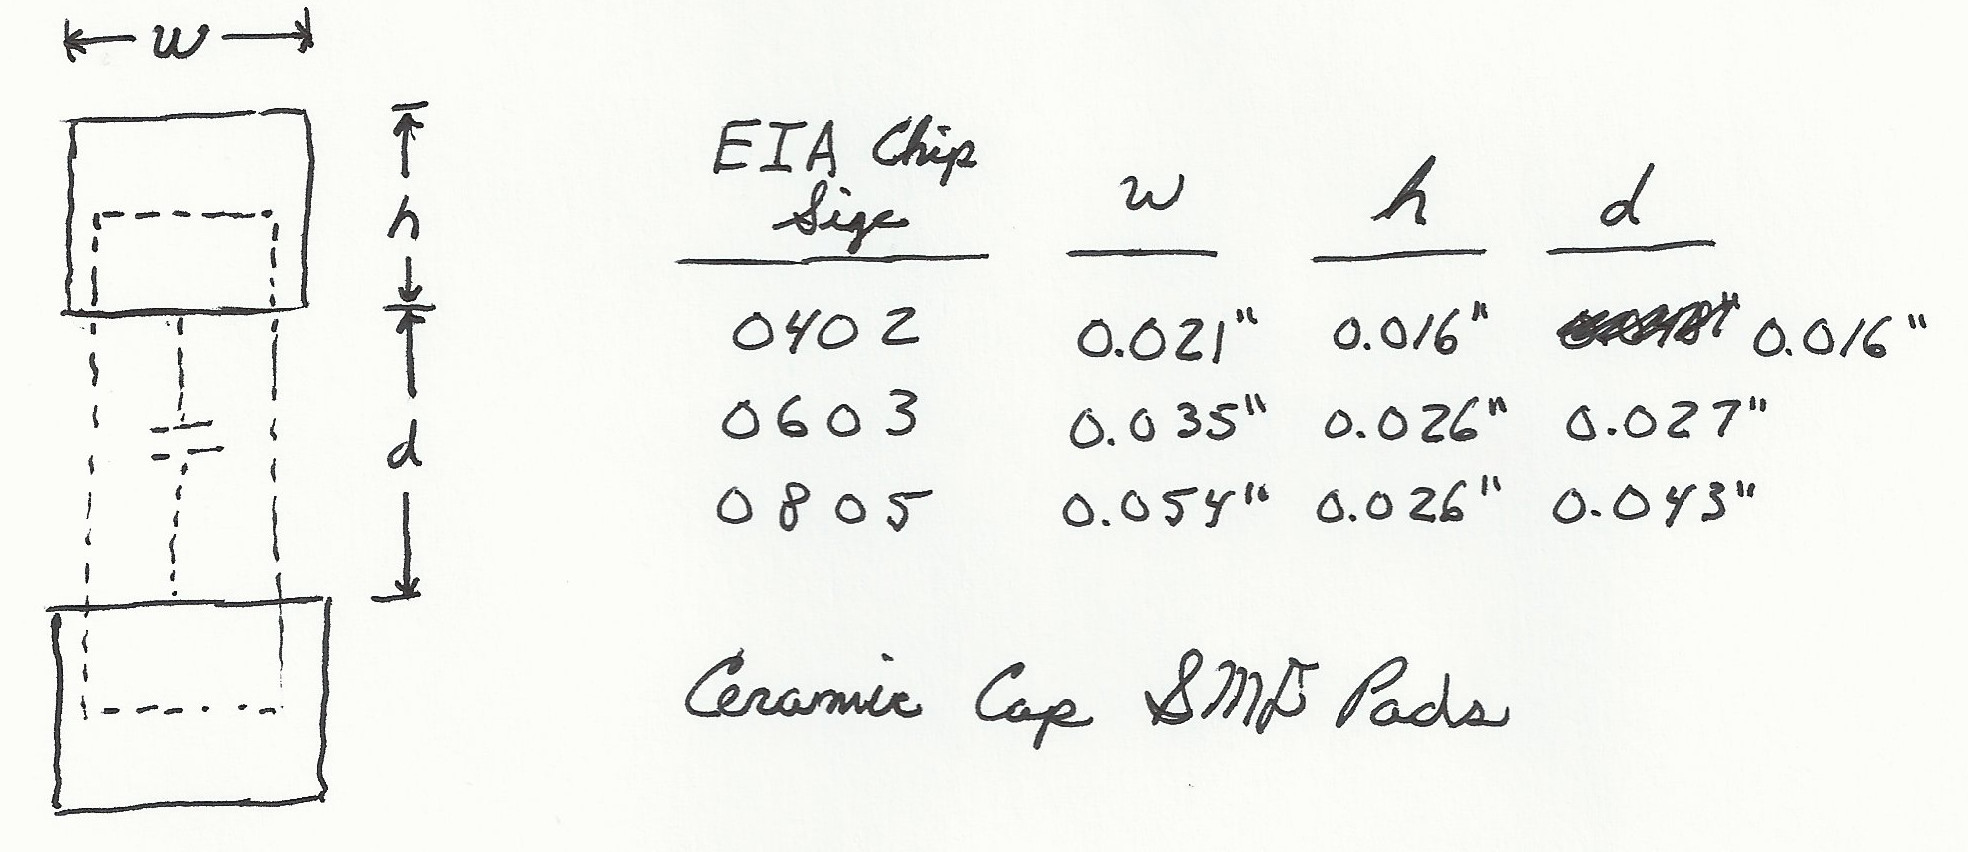 w
h
d
EIA Chip
Size w h d
0402 0.021" 0.016" 0.016"
0603 0.035" 0.026" 0.027"
0805 0.054" 0.026" 0.043"
Ceramic Cap SMD Pads